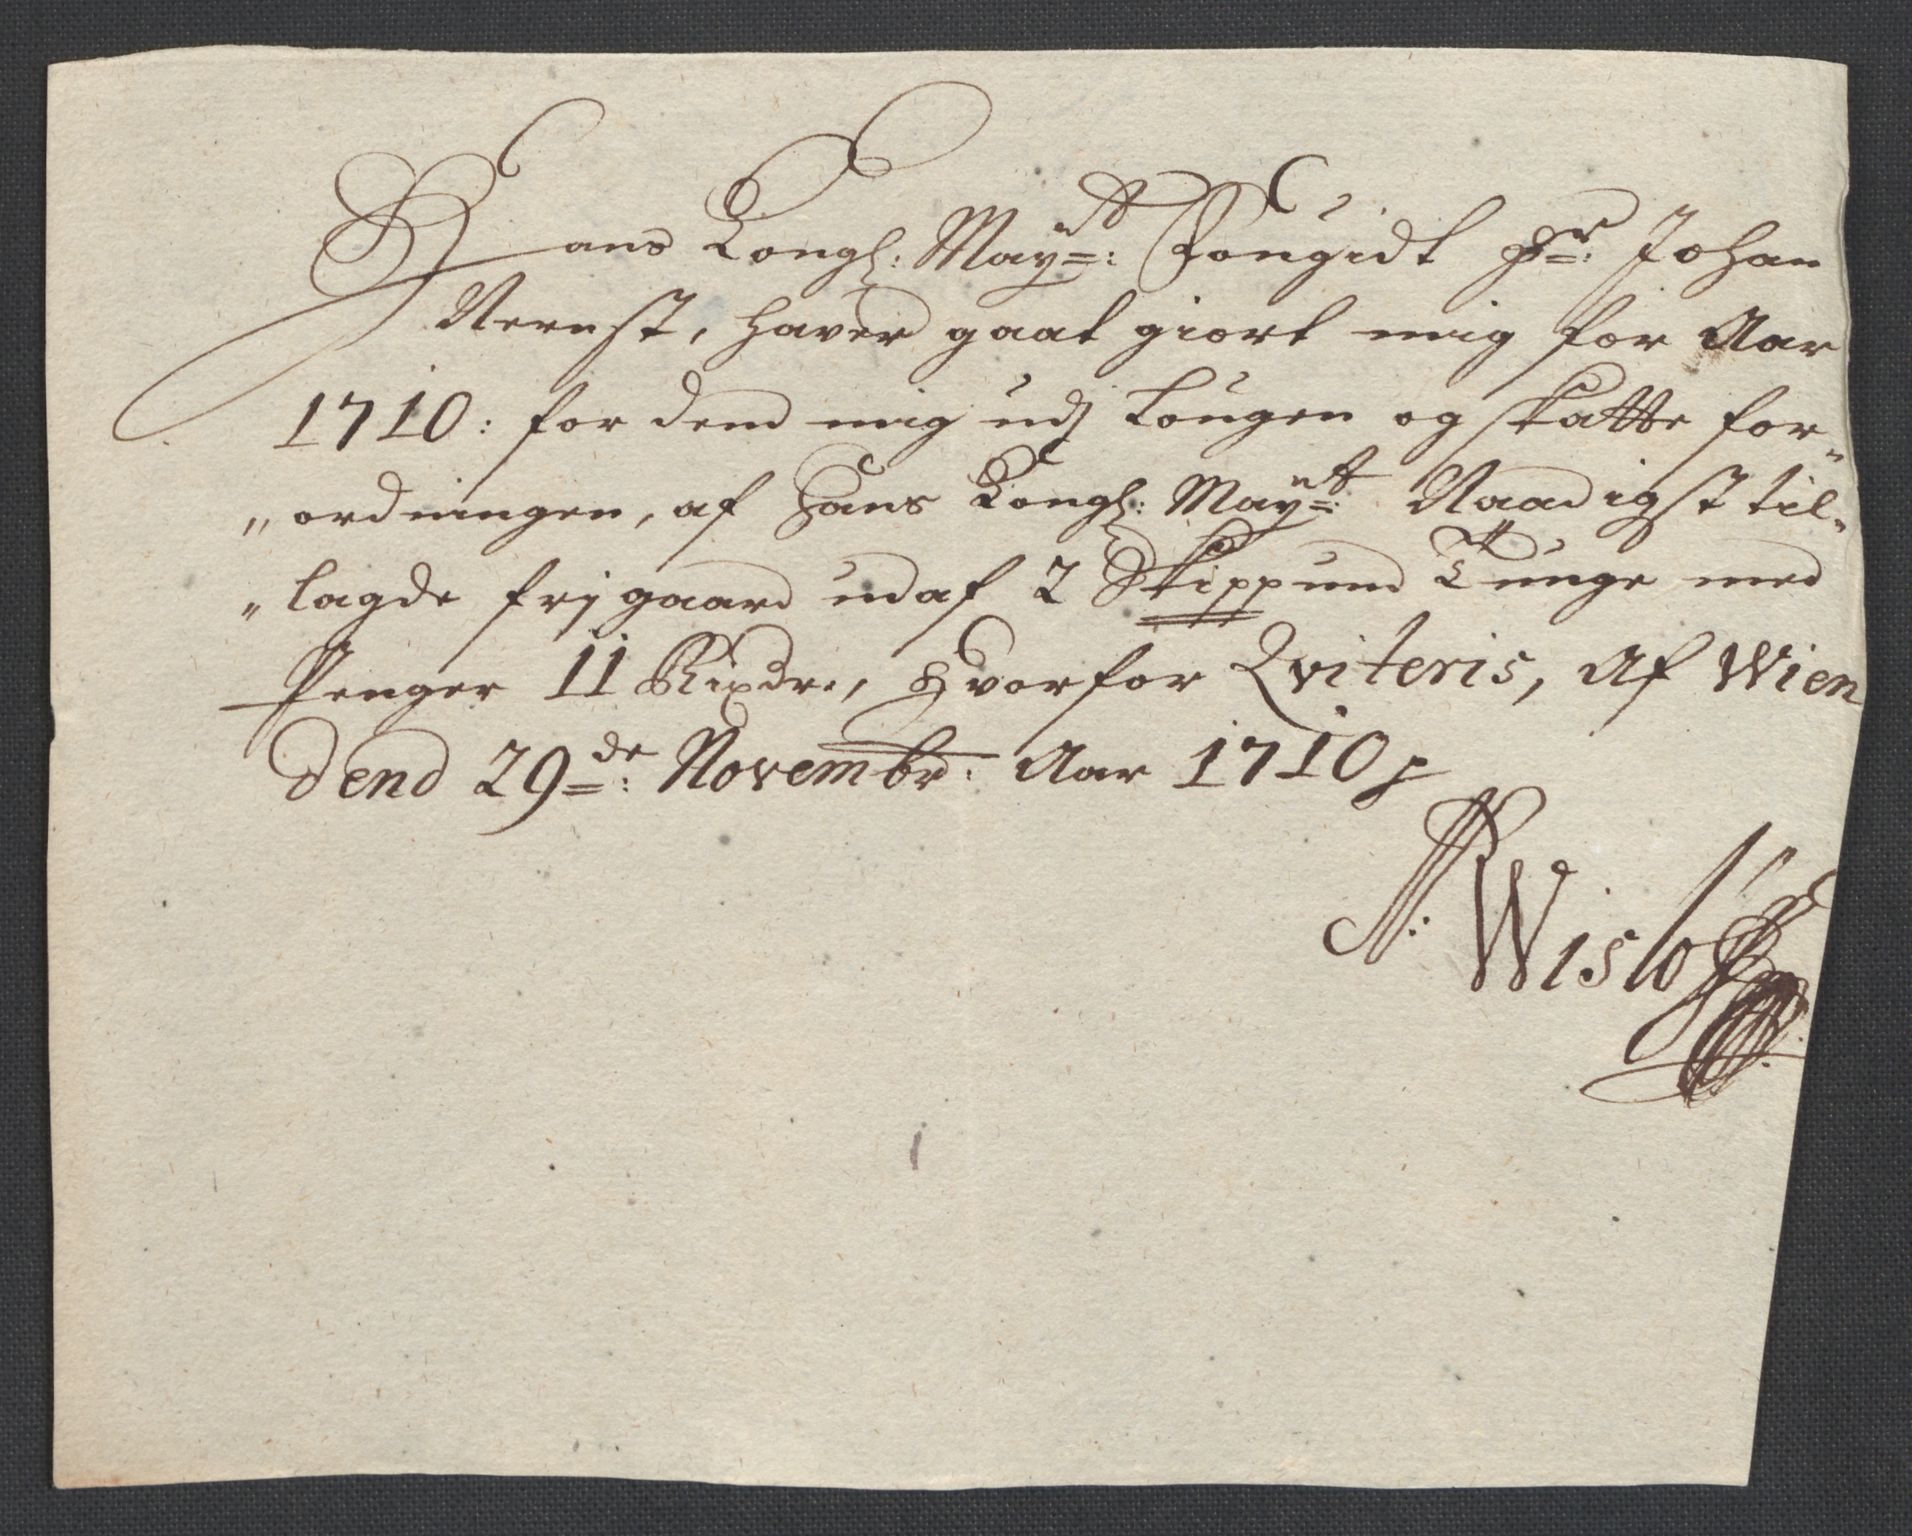 Hans Kongl: Mayts: Fougidt Hr: Johan
Nernst, haver gaat giort mig for Aar
1710: for dend mig udj Lougen og skatte for"
"ordningen, af Hans Kongl: Mayts: Naadigst til"
"lagde frj gaard udaf 2 Skippund Tunge med
Penger 11 Rixdr., Hvorfor Qviteris, Af Wien
dend 29de: Novembr: Aar 1710
Wisløff